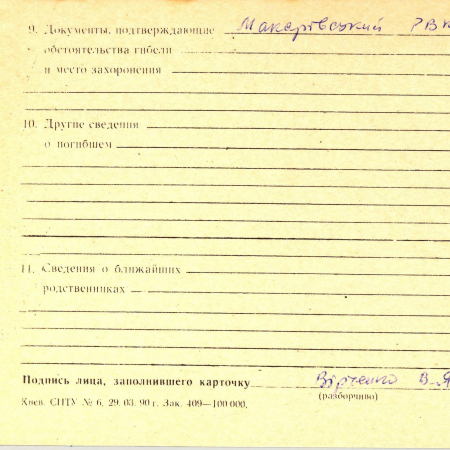 9. Документы, подтверждающие Макарівський РВК
обстоятельства гибели
и место захоронения
10. Другие сведения
о погибшем
11. Сведения о ближайших
родственниках
Подпись лица, заполнившего карточку Вірченко В.Я
(разборчиво)
Киев. СПТУ № 6, 29. 03. 90 г. Зак. 409—100 000.